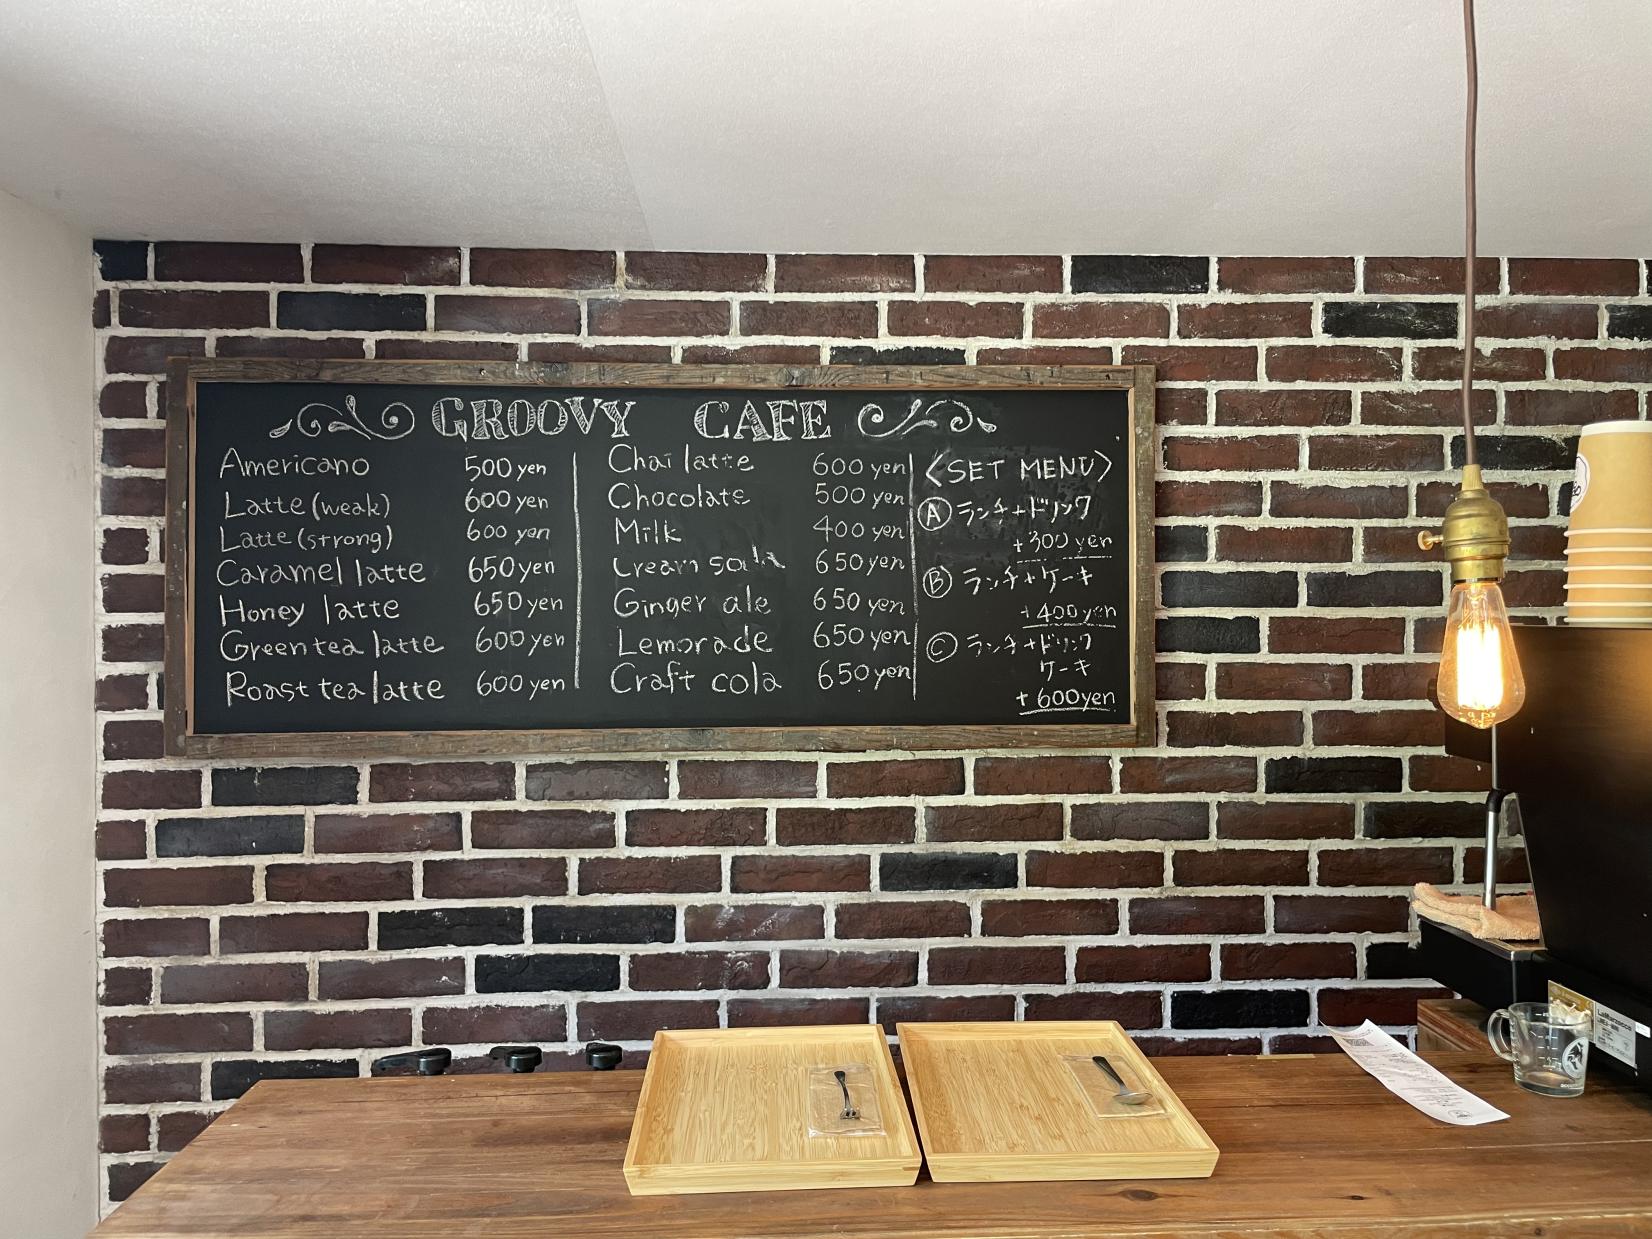 GROOVY CAFE
Americano 500 yen
Latte (weak) 600 yen
Latte (strong) 600 yen
Caramel latte 650 yen
Honey latte 650 yen
Green tea latte 600 yen
Roast tea latte 600 yen
Chai latte 600 yen
Chocolate 500 yen
Milk 400 yen
Cream soda 650 yen
Ginger ale 650 yen
Lemonade 650 yen
Craft cola 650 yen
〈SET MENU〉
Ⓐ ランチ+ドリンク
+300 yen
Ⓑ ランチ+ケーキ
+400 yen
Ⓒ ランチ+ドリンク
ケーキ
+600 yen
LaMarzocco